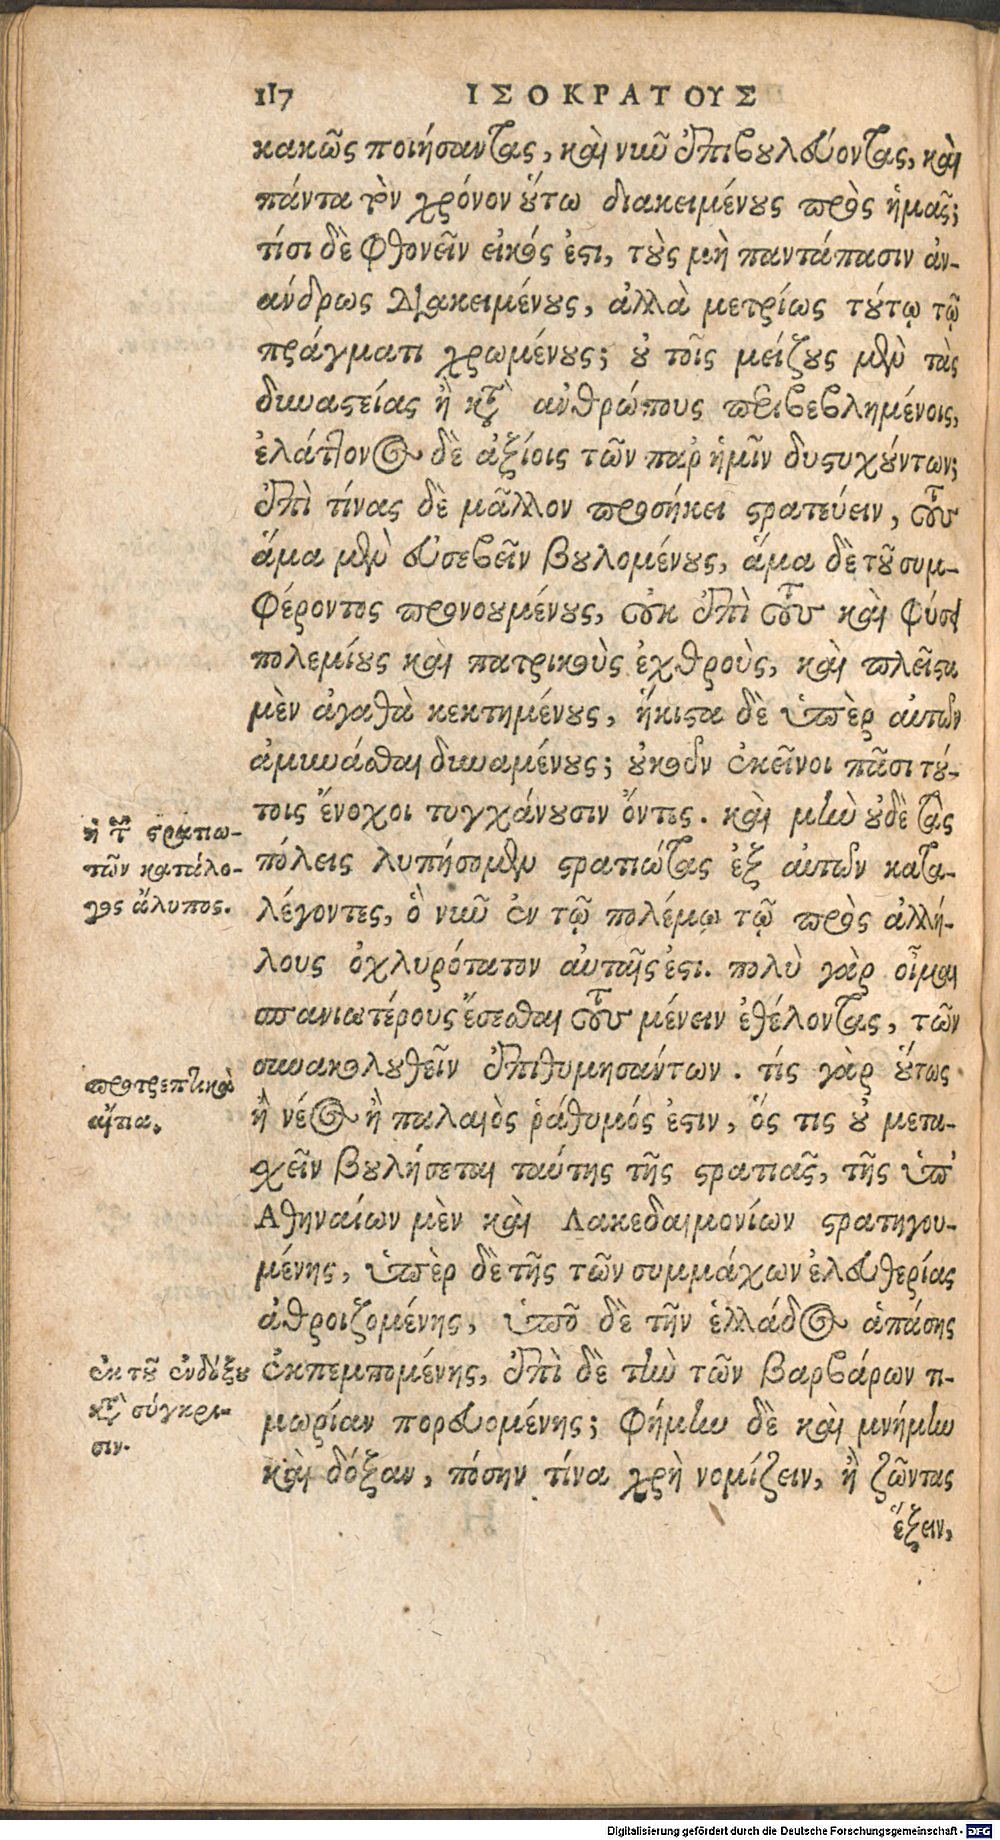 117 ΙΣΟΚΡΑΤΟΥΣ
κακῶς ποιήσαντας, καὶ νῦν ἐπιβουλεύοντας, καὶ
πάντα τὸν χρόνον οὕτω διακειμένους πρὸς ἡμᾶς;
τίσι δὲ φθονεῖν εἰκός ἐστι, τοὺς μὴ παντάπασιν ἀν-
ανδρως διακειμένους, ἀλλὰ μετρίως τούτῳ τῷ
πράγματι χρωμένους; οὐ τοῖς μείζους μὲν τὰς
δυναστείας ἢ κατὰ ἀνθρώπους περιβεβλημένοις,
ἐλάττονος δὲ ἀξίοις τῶν παρ' ἡμῖν δυστυχούντων;
ἐπὶ τίνας δὲ μᾶλλον προσήκει στρατεύειν, τοὺς
ἅμα μὲν εὐσεβεῖν βουλομένους, ἅμα δὲ τοῦ συμ-
φέροντος προνοουμένους, οὐκ ἐπὶ τοὺς καὶ φύσει
πολεμίους καὶ πατρικοὺς ἐχθροὺς, καὶ πλεῖστα
μὲν ἀγαθὰ κεκτημένους, ἥκιστα δὲ ὑπὲρ αὐτῶν
ἀμύνασθαι δυναμένους; οὐκοῦν ἐκεῖνοι πᾶσι τού-
τοις ἔνοχοι τυγχάνουσιν ὄντες. καὶ μὴν οὐδὲ τὰς
πόλεις λυπήσομεν στρατιώτας ἐξ αὐτῶν κατα-
λέγοντες, ὃ νῦν ἐν τῷ πολέμῳ τῷ πρὸς ἀλλή-
λους ὀχληρότατον αὐταῖς ἐστι. πολὺ γὰρ οἶμαι
σπανιωτέρους ἔσεσθαι τοὺς μένειν ἐθέλοντας, τῶν
συνακολουθεῖν ἐπιθυμησάντων. τίς γὰρ οὕτως
ἢ νέος ἢ παλαιὸς ῥάθυμός ἐστιν, ὅς τις οὐ μετα-
σχεῖν βουλήσεται ταύτης τῆς στρατιᾶς, τῆς ὑπ'
Ἀθηναίων μὲν καὶ Λακεδαιμονίων στρατηγου-
μένης, ὑπὲρ δὲ τῆς τῶν συμμάχων ἐλευθερίας
ἀθροιζομένης, ὑπὸ δὲ τῆν ἑλλάδος ἁπάσης
ἐκπεμπομένης, ἐπὶ δὲ τὴν τῶν βαρβάρων τι-
μωρίαν πορευομένης; φήμην δὲ καὶ μνήμην
καὶ δόξαν, πόσην τίνα χρὴ νομίζειν, ἢ ζῶντας
ἕξειν,
ἡ τῶν στρατιω-
τῶν κατάλο-
γος ἄλυπος.
προτρεπτικὰ
αἴτια.
ἐκ τοῦ ἐνδόξου
κατὰ σύγκρι-
σιν.
Digitalisierung gefördert durch die Deutsche Forschungsgemeinschaft - DFG